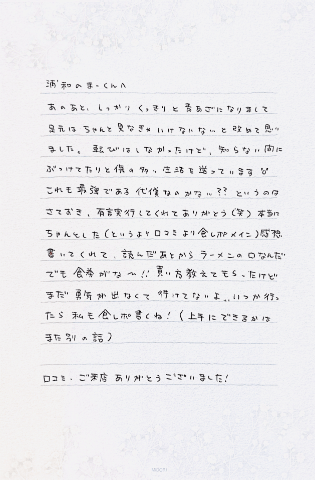 浦和のまーくんへ
あのあと、しっかり くっきりと 青あざになりまして
足元は ちゃんと 見なきゃ いけないないと 改めて 思い
ました。 転びはしなかったけど、知らない間に
ぶつけてたりと傷の多い生活を送っています
これも 最強である 代償なのかな!?? というのは
さておき、有言実行してくれてありがとう(笑) 本当に
ちゃんとした(というより口コミより食レポメイン)感想
書いてくれて、読んだあとから ラーメンの口なんだ
でも 食券がな〜!! 買い方教えてもらったけど
まだ 勇気が出なくて 行けてないよ、、いつか行っ
たら 私も 食レポ書くね! (上手にできるかは
また別の話)
口コミ・ご来店 ありがとうございました!